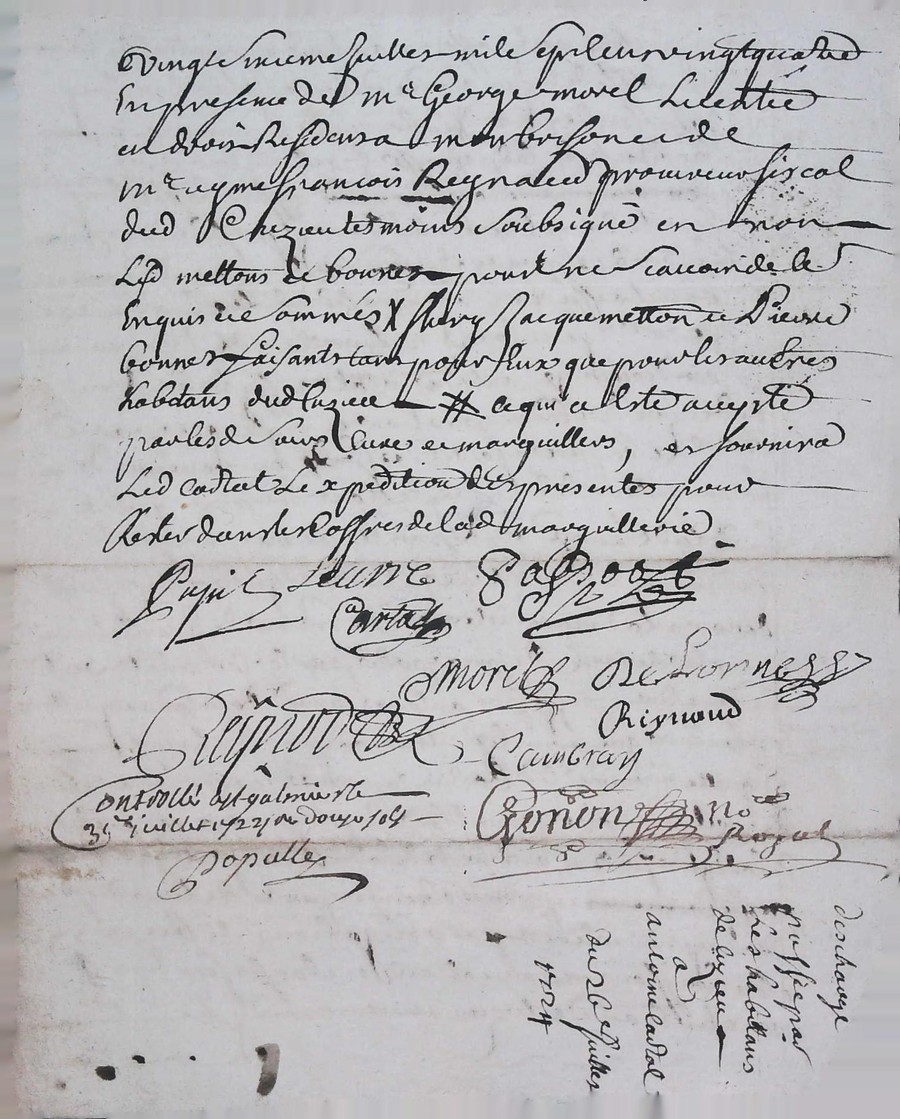 vingt sixieme Juillet mile sept cens vingt quatre
En presence de Mr George morel Licentie
en droit Residens a montbrison et de
mr ayme francois Reynaud procureur fiscal
dud Cuzieu tesmoins soubsigné et non
Led mettons et bonnet pour ne scavoir de ce
Enquis et sommés X fleury Jacquemetton et Pierre
bonnet faisants tant pour Eux que pour les autres
habitans dud Cuzieu # ce qui a Esté accepté
par lesd Sieurs Cure et marguilliers, et fournira
Led Cadtal Expedition des presentes pour
Rester dans les Coffres de lad marguillerie
Pupil Cure
Morel
Reynaud
Reynod
Cambray
Controllé a st galmier le
31e juillet 1724
Populle
Gonon no
Royal
descharge
passée par
Les habitans
de Cuzieu
a
antoine Cadtal
du 26e Juillet
1724